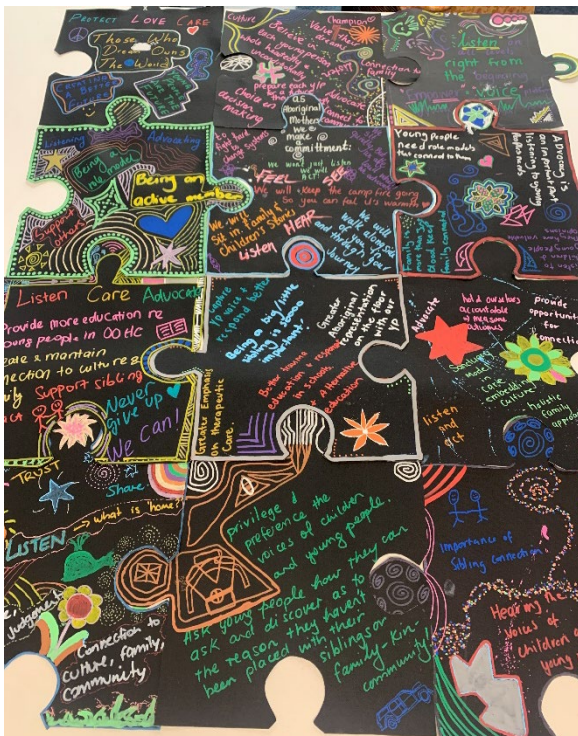 PROTECT LOVE CARE
Those Who
Dream Owns
The World
Culture
Champion
Value their
dreams
Believe in
each young person
whole heartedly
Connection to
family
prepare each y/p
Advocate
choice
decision
making
Listen
right from
the beginning
Empower Voice
Listening
Advocating
Being a
role model
Being an
active
Support
others
as
Aboriginal
Mothers
We
make a
commitment:
Change Systems
We won't just Listen
We will FEEL
We will keep the campfire going
So you can feel its warmth
We will
Sit in Family &
Children's Stories
LISTEN HEAR
We will
walk alongside
of you, for you
and through your
Journey
Young people
need role models
that connect to them
Advocacy is
an important part
listening to young
Family is
more than
blood. Keep
family connected
Listen Care Advocate
Provide more education re
young people in OOHC
& mantain
connection to culture &
Support sibling
Never
give up
We Can!
capture
YP voice &
respond better
Being a big/little
sibling is soooo
important
Greater
Aboriginal
representation
on the floor
with our
YP
Better trauma
education & response
in schools
+ Alternative
education
Greater Emphasis
on therapeutic
Care.
Advocate
hold ourselves
accountable
& measure
outcomes
provide
for
Sanctuary
model
in
care
embedding
Culture
listen
and
act
Holistic
Family
TRUST
Share
what is 'home'
LISTEN
Judgement
Connection to
culture, family,
community
privilege &
preference the
voices of children
and young people.
Ask young people how they can
ask and discover as to
the reason they haven't
been placed with their
siblings or
family-kin-
community!
Importance of
Sibling connection!
Hearing
voices of
children
young